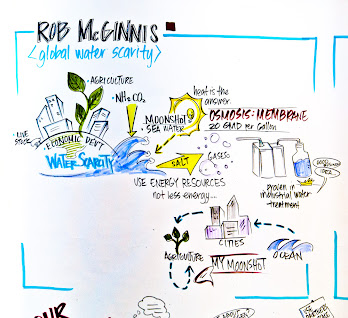 ROB McGINNIS
<global water scarity>
• AGRICULTURE
• LIVE
STOCK
• ECONOMIC DEV'T
WATER SCARCITY
• NH₃ CO₂
• MOONSHOT
SEA WATER
heat is the
answer
OSMOSIS: MEMBRANE
20 GMD per Gallon
SALT
GASES
USE ENERGY RESOURCES
not less energy...
proven in
industrial water
treatment
CITIES
AGRICULTURE
MY MOONSHOT
OCEAN
OUR